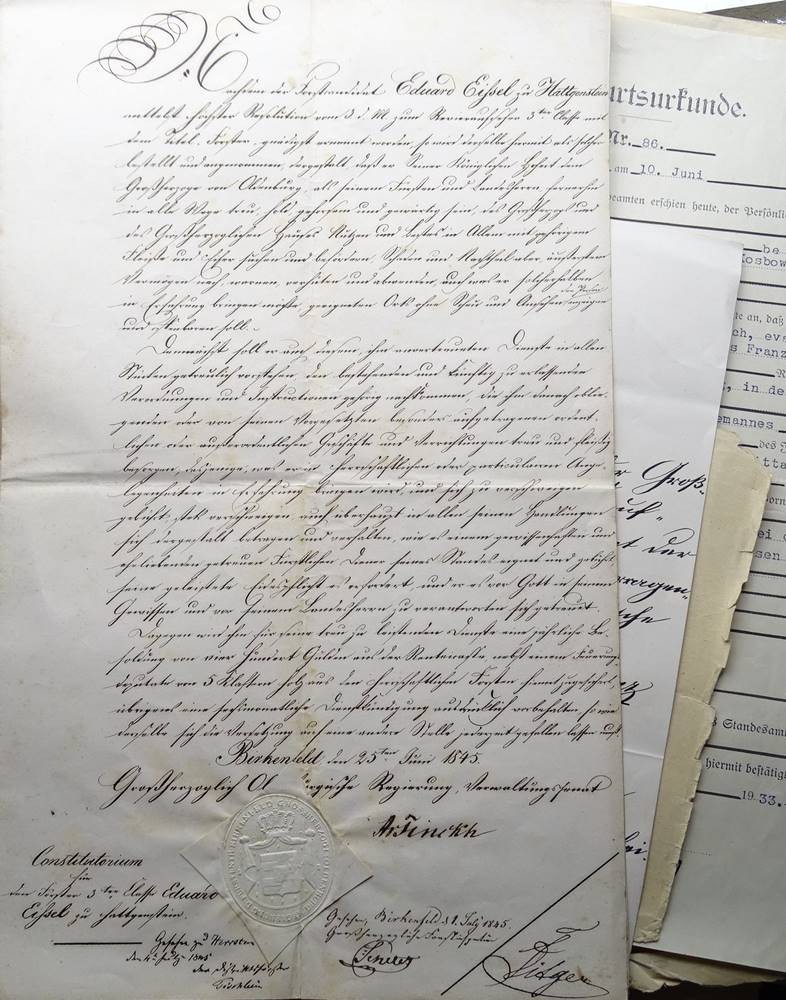 Nachdem der Forstcandidat Eduard Eißel zu Hattgenstein
mittelst höchster Resolution vom 3 d. M. zum Revieraufseher 3ter Classe mit
dem Titel: Förster, gnädigst ernannt worden, so wird derselbe hiermit als solcher
bestellt und angenommen, dergestalt, daß er Seiner Königlichen Hoheit dem
Großherzoge von Oldenburg, als seinem Fürsten und Landesherrn, fernerhin
in alle Wege treu, hold, gehorsam und gewärtig sein, des Großherzogs und
des Großherzoglichen Hauses Nutzen und Bestes in Allem mit gehörigem
Fleiße und Eifer suchen und befördern, Schaden und Nachtheil aber, äußerstem
Vermögen nach, warnen, verhüten und abwenden, auch was er solcherhalben
in Erfahrung bringen möchte, geeigneten Orts ohne Scheu und Ansehen der Person anzeigen
und offenbaren soll.
Demnächst soll er auch diesem, ihm anvertrauten Dienste in allen
Stücken getreulich vorstehen, den bestehenden und künftig zu erlassenden
Verordnungen und Instructionen gehörig nachkommen, die ihm danach oblie-
genden oder von seinen Vorgesetzten besonders aufgetragenen ordent-
lichen oder außerordentlichen Geschäfte und Verrichtungen treu und fleißig
besorgen, dasjenige, was er in herrschaftlichen oder particularen Ange-
legenheiten in Erfahrung bringen wird, und sich zu verschweigen
gebührt, stets verschweigen, auch überhaupt in allen seinen Handlungen
sich dergestalt betragen und verhalten, wie es einem gewissenhaften und
ehrliebenden getreuen Fürstlichen Diener seines Standes eignet und gebührt,
seine geleistete Eidespflicht es erfordert, und er es vor Gott in seinem
Gewissen und vor seinem Landesherrn zu verantworten sich getrauet.
Dagegen wird ihm für seine treu zu leistenden Dienste eine jährliche Be-
soldung von vier Hundert Gulden aus der Rentencasse, nebst einem Feuerungs-
deputate von 5 Klaftern Holz aus den herrschaftlichen Forsten hiermit zugesichert,
übrigens eine sechsmonatliche Dienstkündigung ausdrücklich vorbehalten, so wie
derselbe sich die Versetzung auf eine andere Stelle jederzeit gefallen lassen muß.
Birkenfeld den 25ten Juni 1845.
Großherzoglich Ol rgische Regierung, Verwaltungssenat
Finckh
Constitutorium
für
den Förster 3ter Classe Eduard
Eißel zu Hattgenstein.
Gesehen zu Herrstein
Gesehen, Birkenfeld d 1. July 1845.
Großherzogliche Forstinspection
urtsurkunde.
Nr. 86.
am 10. Juni
beamten erschien heute, der Persönli
be
osbow
te an, daß
ch, eva
s Franz
R
, in de
emannes
des
itta
r Groß-
der
rragen-
ei
sen
s Standesam
hiermit bestätig
19 33.